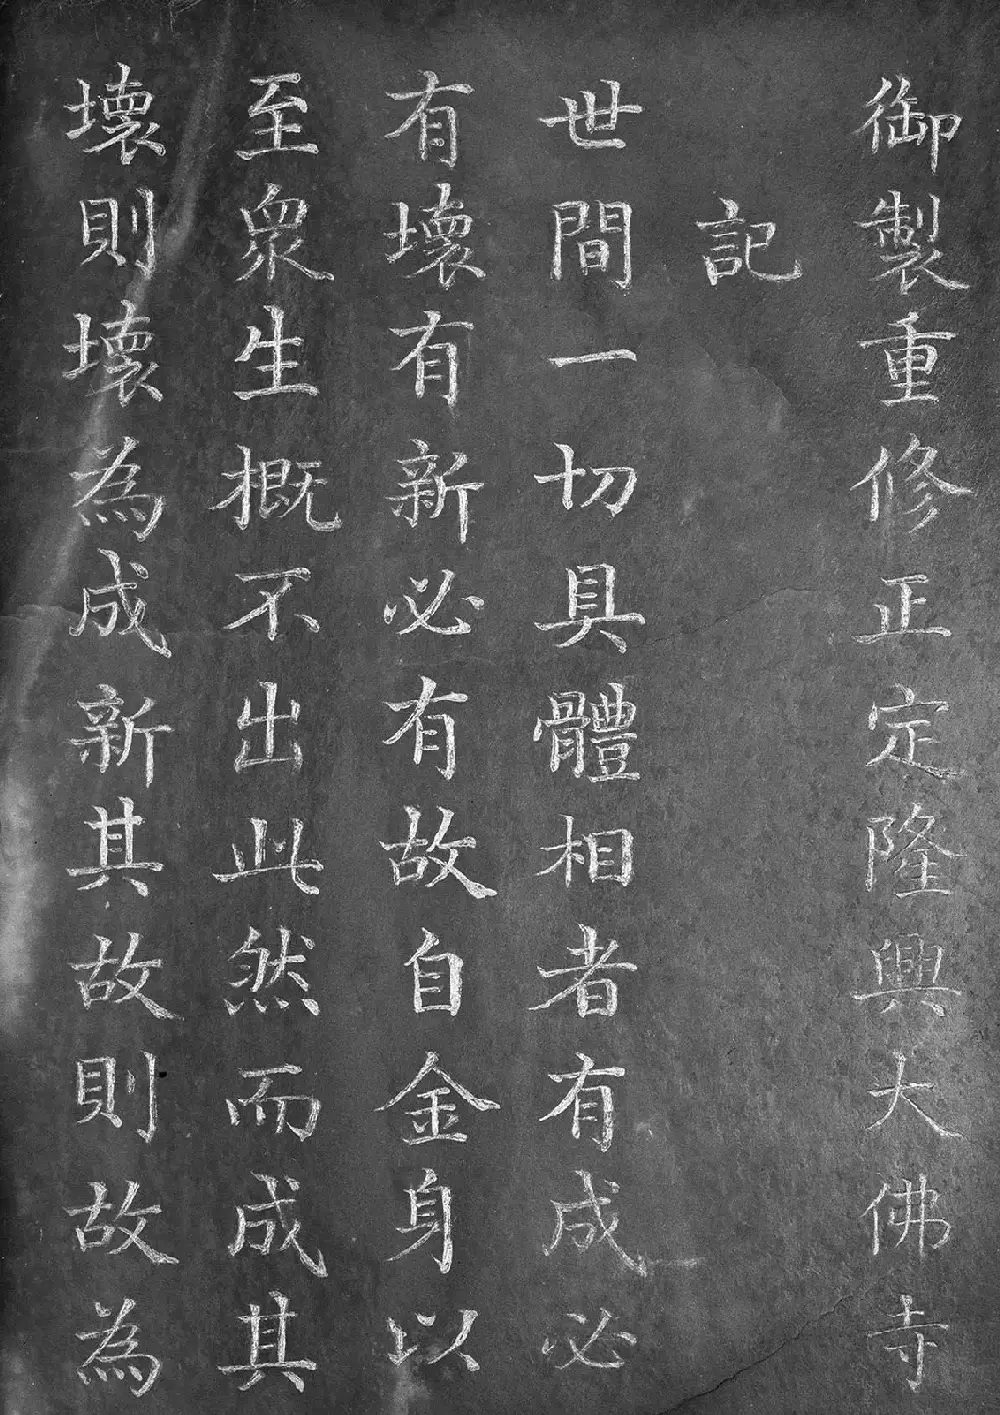 御製重修正定隆興大佛寺
記
世間一切具體相者有成必
有壞有新必有故自金身以
至衆生概不出此然而成其
壞則壞為成新其故則故為